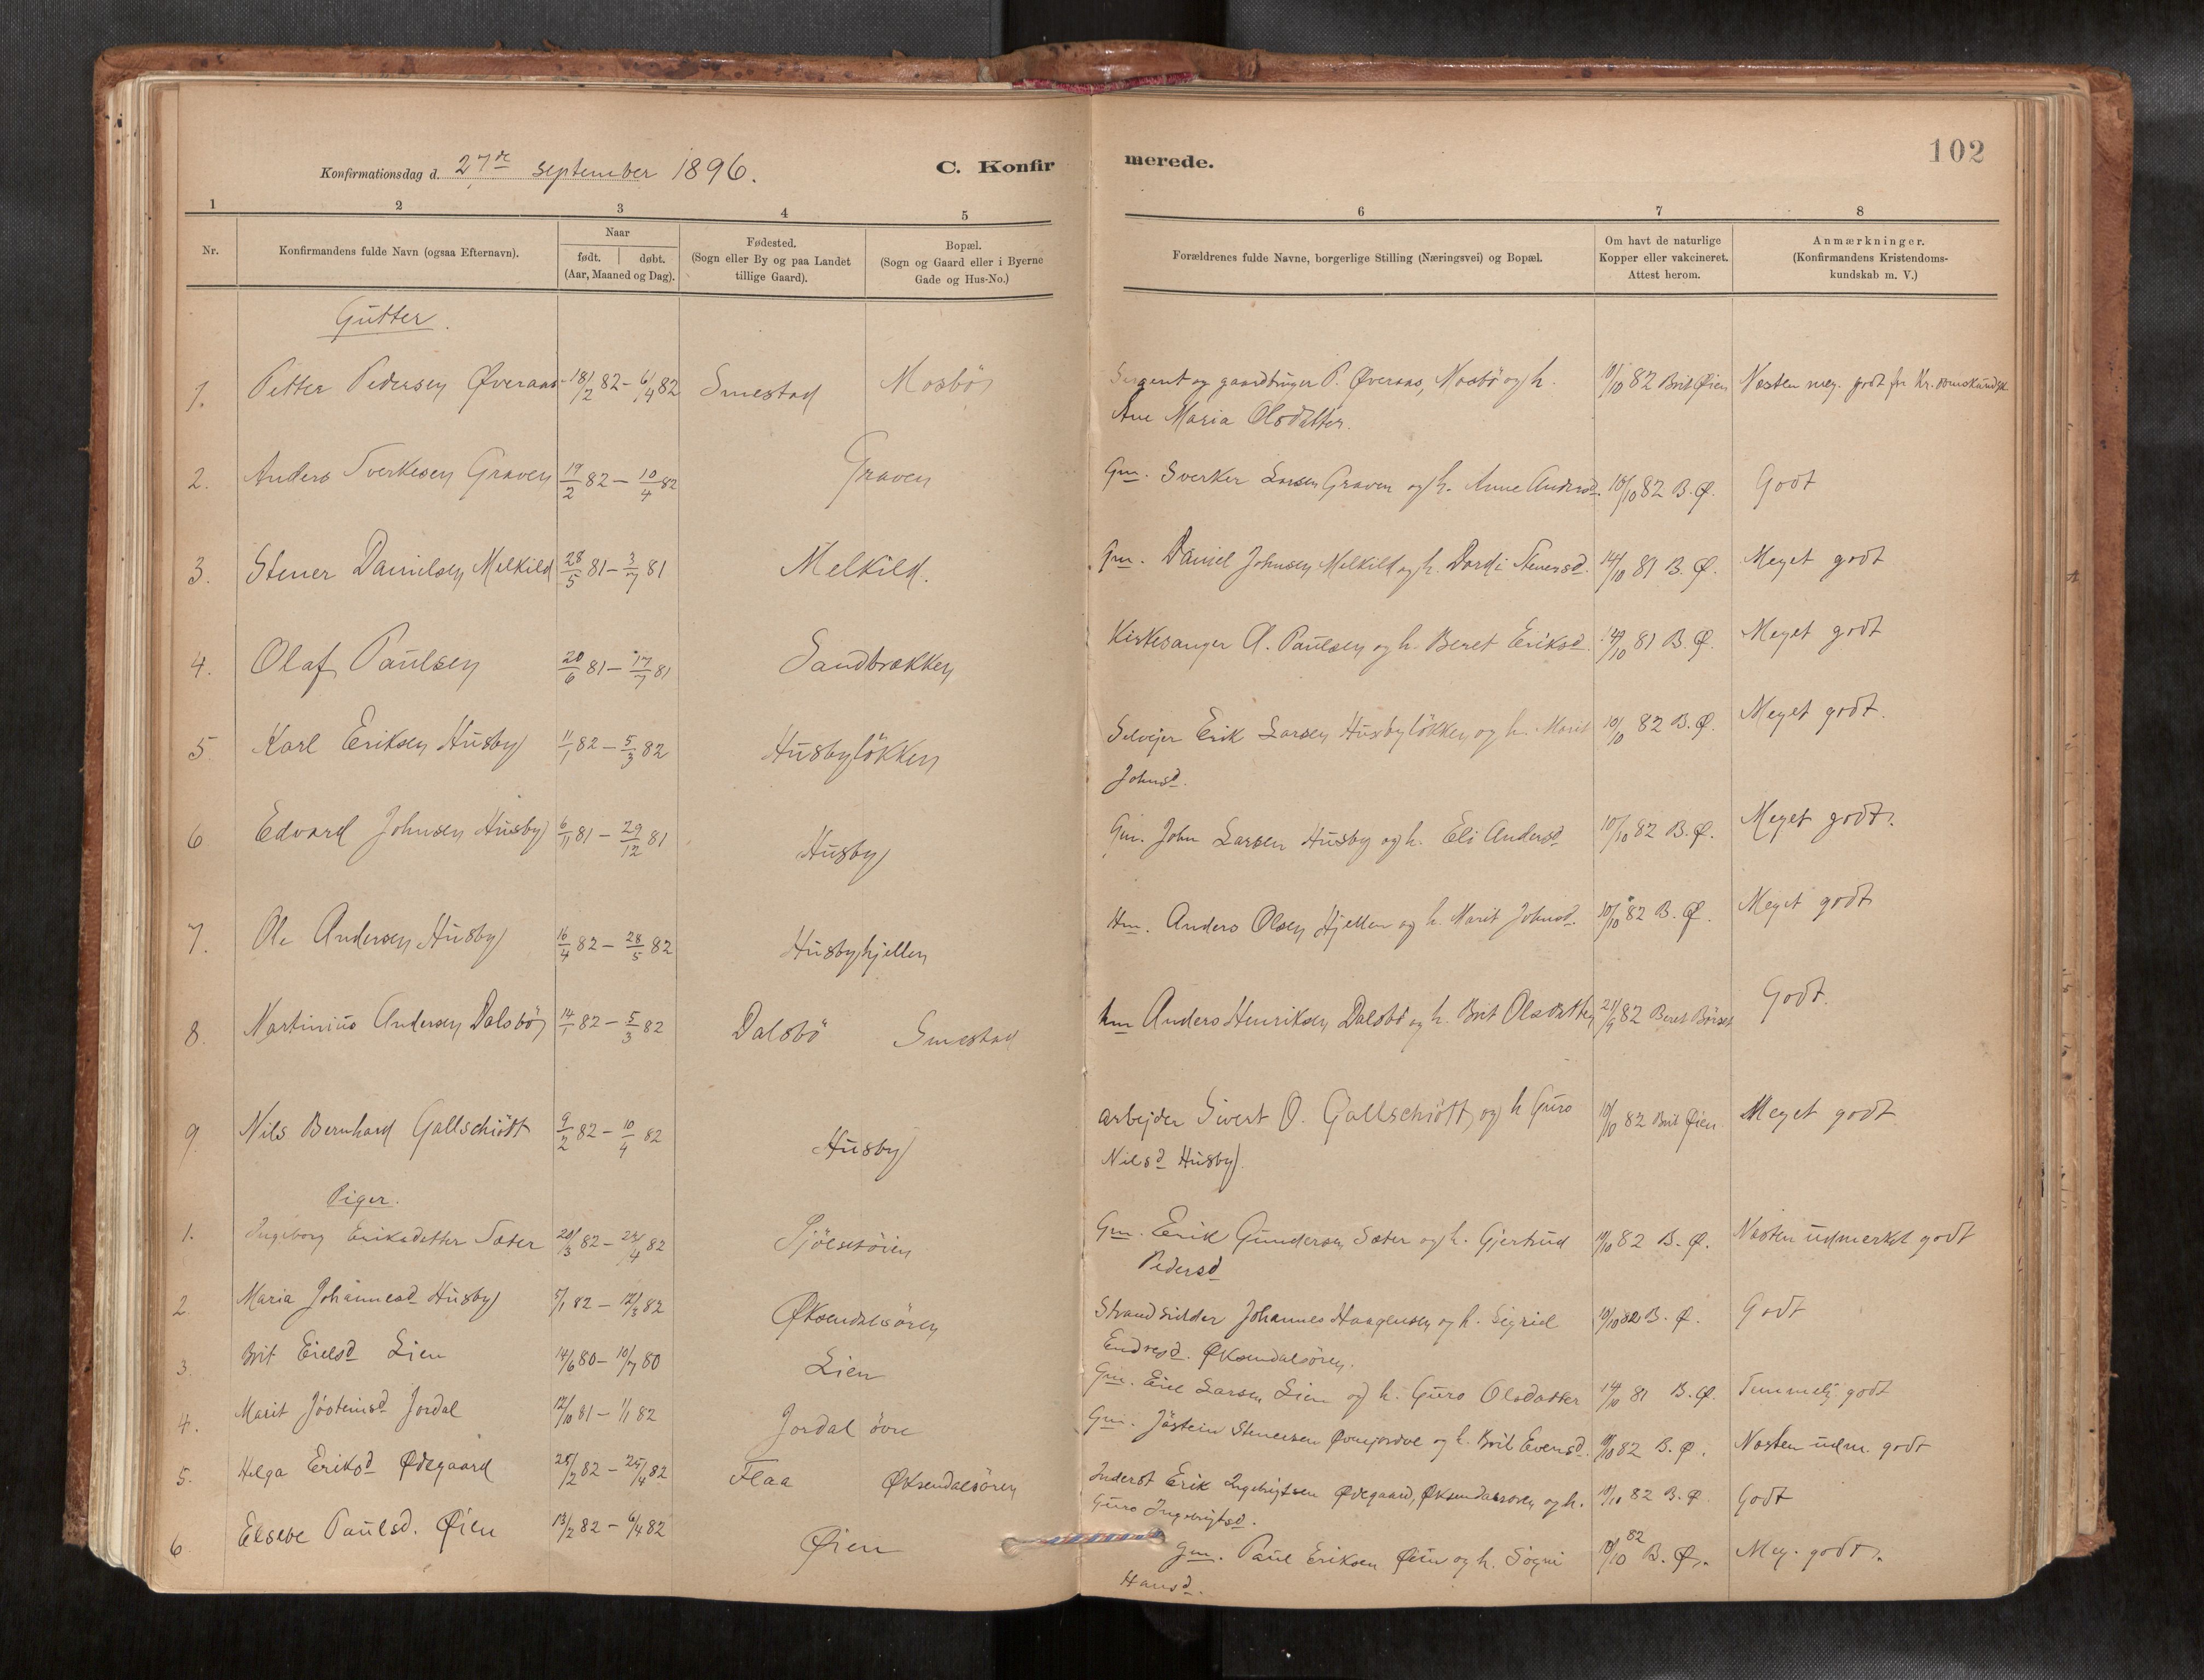 102
Konfirmationsdag d. 27de september 1896.
C. Konfirmerede.
1 2 3 4 5 6 7 8
Nr.
Konfirmandens fulde Navn (ogsaa Efternavn).
Naar
født. døbt.
(Aar, Maaned og Dag).
Fødested.
(Sogn eller By og paa Landet
tillige Gaard).
Bopæl.
(Sogn og Gaard eller i Byerne
Gade og Hus-No.)
Forældrenes fulde Navne, borgerlige Stilling (Næringsvei) og Bopæl.
Om havt de naturlige
Kopper eller vakcineret.
Attest herom.
Anmærkninger.
(Konfirmandens Kristendoms-
kundskab m. V.)
Gutter.
1. Petter Pedersen Øveraas 18/2 82 - 6/4 82 Smestad Mosbö Sergent og gaardbruger P. Øveraas, Mosbö og h. 10/10 82 Brit Øien Næsten meg. godt for Kr.
Ane Maria Olsdatter.
2. Anders Sverkesen Graven 19/2 82 - 10/4 82 Graven Gm. Sverker Larsen Graven og h. Anne Andersd. 10/10 82 B. Ø. Godt
3. Stener Danielsen Melkild 28/5 81 - 3/7 81 Melkild. Gm. Daniel Johnsen Melkild og h. Dordi Stenersd. 14/10 81 B. Ø. Meget godt
4. Olaf Paulsen 20/6 81 - 17/7 81 Sandbrækken Kirkesanger A. Paulsen og h. Beret Eriksd. 14/10 81 B. Ø. Meget godt
5. Karl Eriksen Husby 11/1 82 - 5/3 82 Husbylökken Selvejer Erik Larsen Husbylökken og h. Marit 10/10 82 B. Ø. Meget godt.
Johnsd.
6 Edvard Johnsen Husby 6/11 81 - 29/12 81 Husby Gm. John Larsen Husby og h. Eli Andersd 10/10 82 B. Ø. Meget godt.
7. Ole Andersen Husby 16/4 82 - 28/5 82 Husbyhjellen Hm. Anders Olsen Hjellen og h. Marit Johnsd. 10/10 82 B. Ø. Meget godt
8. Martinius Andersen Dalsbö 14/1 82 - 5/3 82 Dalsbö Smestad hm Anders Henriksen Dalsbö og h. Brit Olsdatter 21/9 82 Beret Börset Godt.
9. Nils Bernhard Gallschiött 9/2 82 - 10/4 82 Husby arbejder Sivert O. Gallschiött og h Guro 10/10 82 Brit Øien Meget godt
Nilsd Husby.
Piger.
1. Ingeborg Eriksdatter Sæter 20/3 82 - 24/4 82 Sjölsetöien Gm. Erik Gundersen Sæter og h. Gjertrud 10/10 82 B. Ø. Næsten udmerket godt
Pedersd
2 Maria Johannesd Husby 5/1 82 - 12/3 82 Øksendalsören Strandsidder Johannes Haagensen og h. Sigrid 10/10 82 B. Ø. Godt
Endresd. Øksendalsören.
3. Brit Eielsd Lien 14/6 80 - 10/7 80 Lien Gm. Eiel Larsen Lien og h. Guro Olsdatter 14/10 81 B. Ø. Temmelig godt
4. Marit Jösteinsd Jordal 12/10 81 - 1/1 82 Jordal övre Gm. Jöstein Stenersen Øvrejordal og h. Brit Evensd. 10/10 82 B. Ø. Næsten udm. godt
5. Helga Eriksd Ødegaard 28/2 82 - 25/4 82 Flaa Øksendalsören Inderst Erik Ingebrigtsen Ødegaard, Øksendalsören og h. 10/10 82 B. Ø. Godt
Guro Ingebrigtsd.
6. Elsebe Paulsd. Øien 13/2 82 - 6/4 82 Øien Gm. Paul Eriksen Øien og h. Signi 10/10 82 B. Ø. Meg. godt.
Hansd.